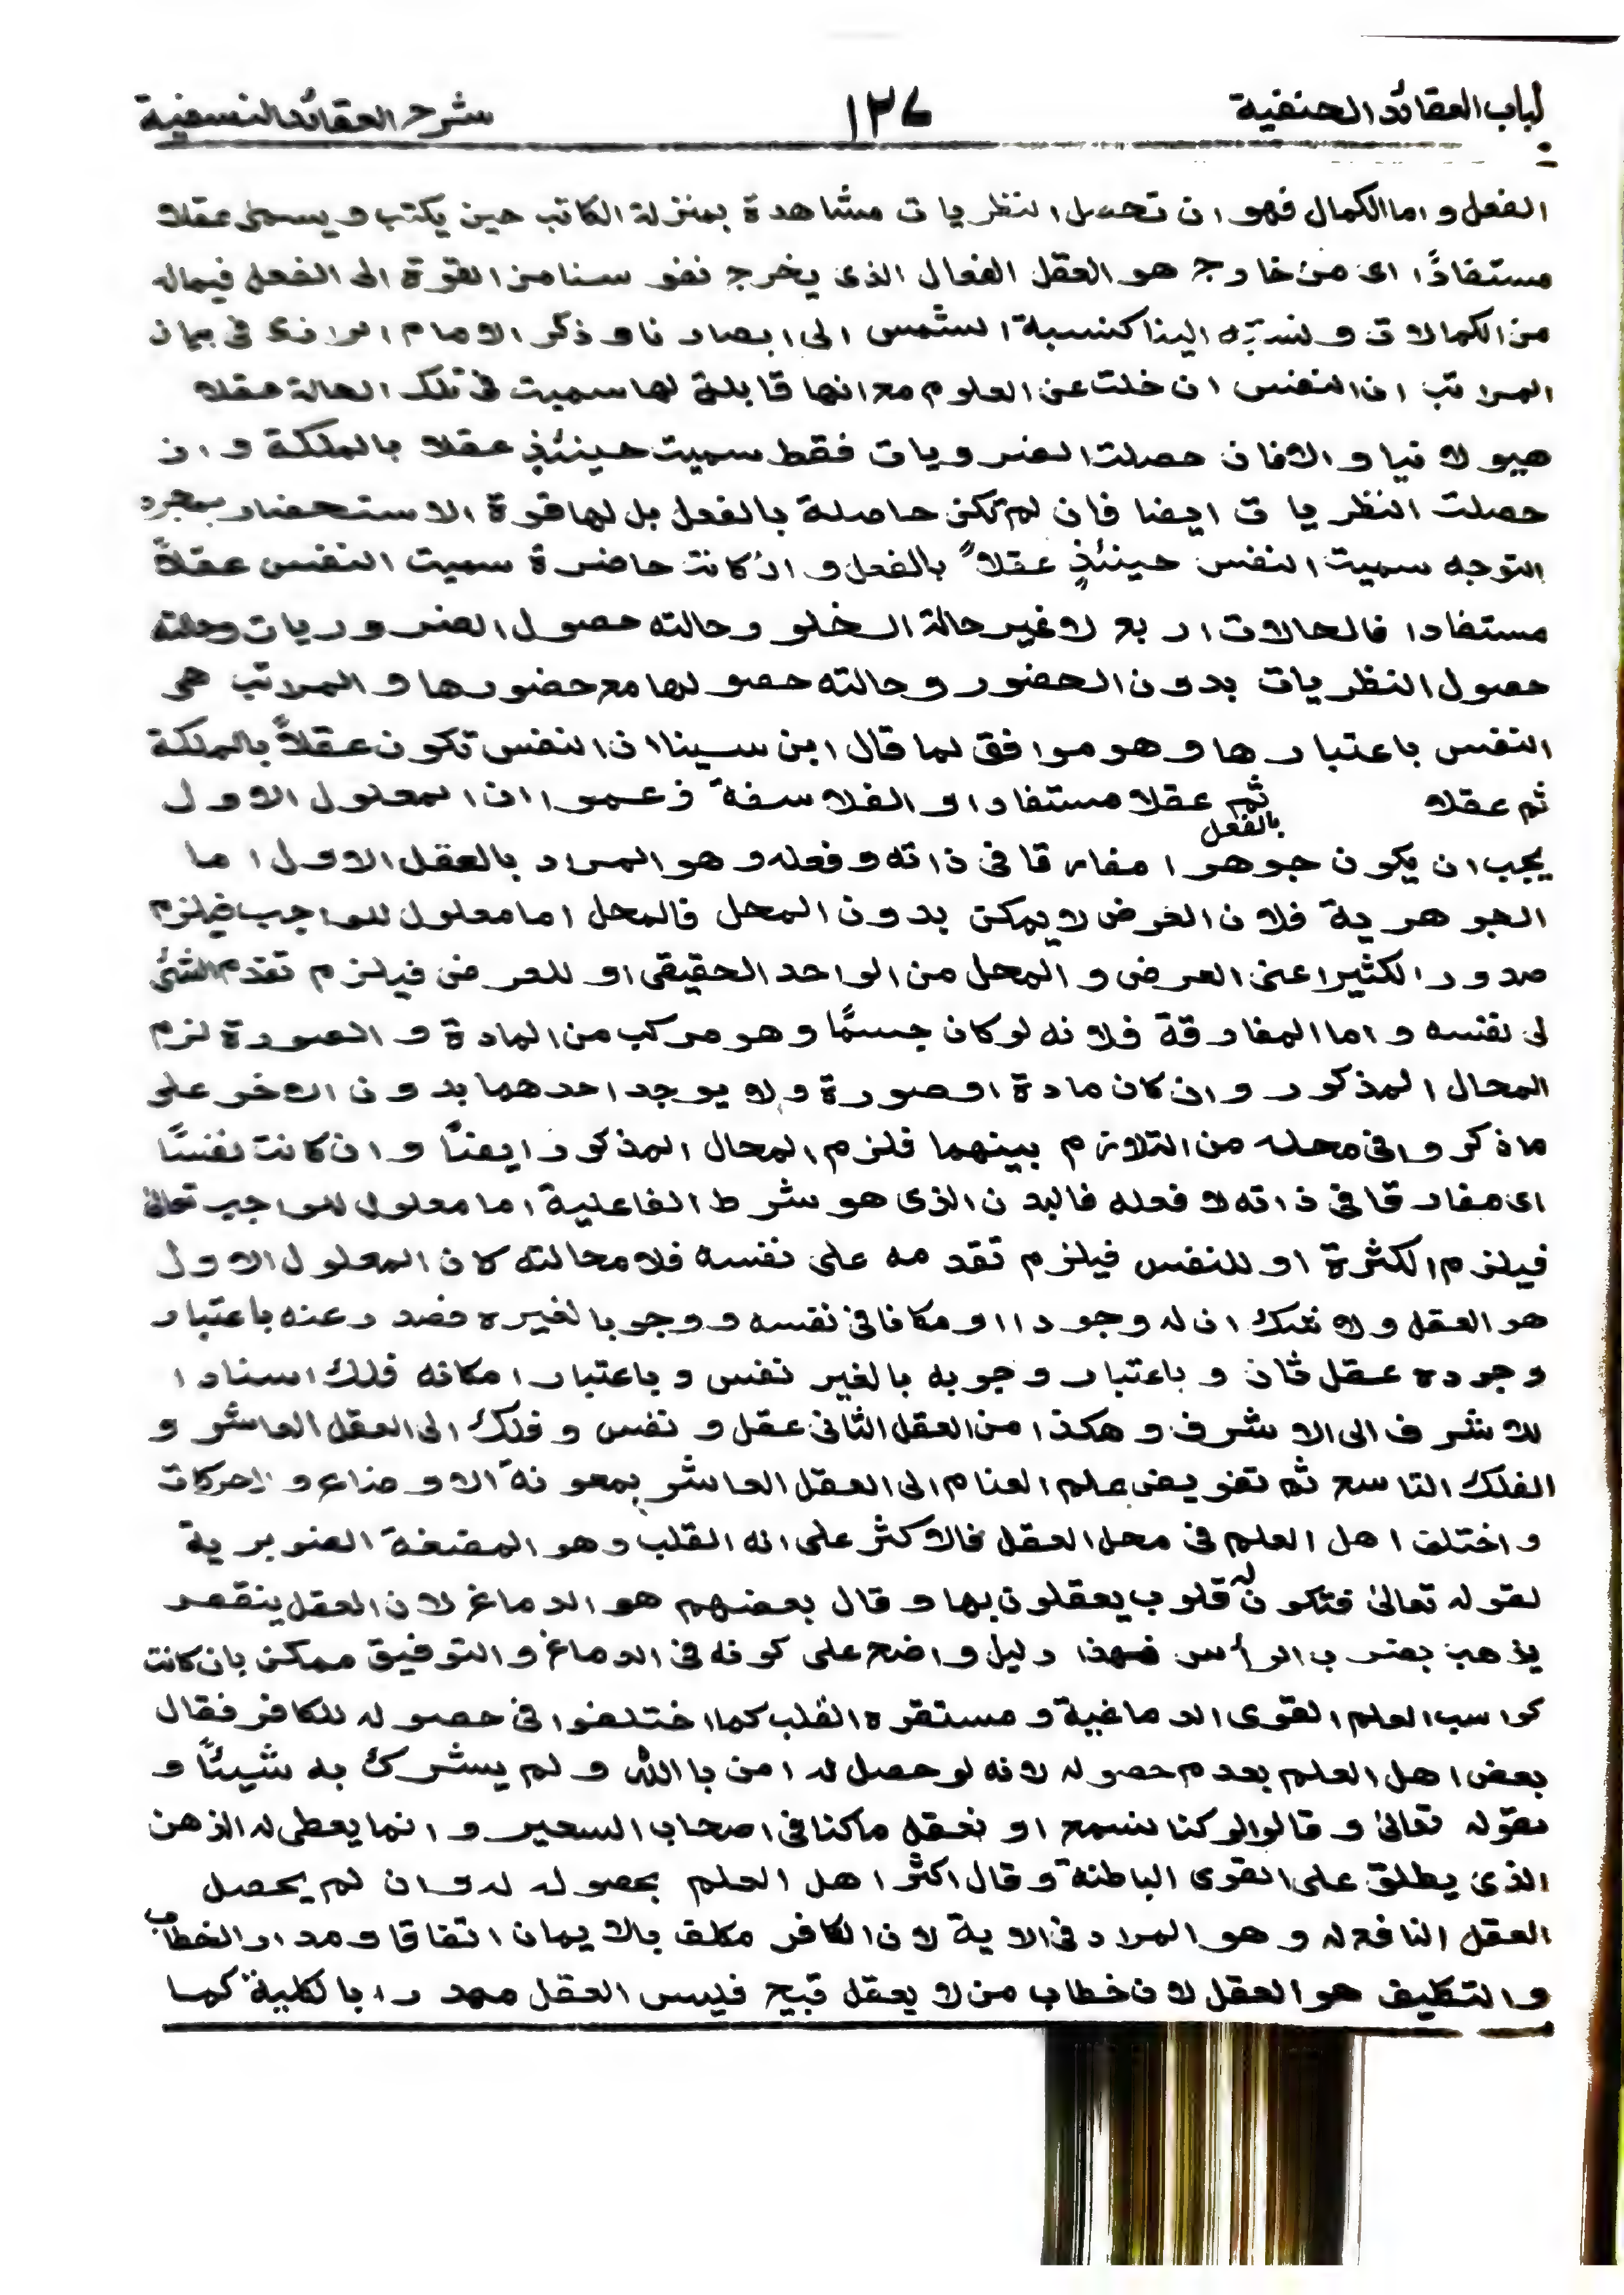 لباب العقائد الحنفية ١٢٧ شرح العقائد النسفية
الفعل و اما الكمال فهو ان تحصل النظريات مشاهدة بمنزلة الكاتب حين يكتب و يسمى عقلا
مستفادًا اى من خارج هو العقل الفعال الذى يخرج نفوسنا من القوة الى الفعل فيماله
من الكمالات و نسبته الينا كنسبة الشمس الى ابصارنا و ذكر الامام الرازى فى بيان
المراتب ان النفس ان خلت عن العلوم مع انها قابلة لها سميت فى تلك الحالة عقلا
هيولانيا و الا فان حصلت الضرويات فقط سميت حينئذٍ عقلا بالملكة و ان
حصلت النظريات ايضا فان لم تكن حاصلة بالفعل بل لها قوة الاستحضار بمجرد
التوجه سميت النفس حينئذٍ عقلاً بالفعل و ان كانت حاضرة سميت النفس عقلاً
مستفادا فالحالات اربع لا غير حالة الخلو و حالته حصول الضروريات وحالته
حصول النظريات بدون الحضور و حالته حصولها مع حضورها و المراتب هى
النفس باعتبارها و هو موافق لما قال ابن سينا ان النفس تكون عقلاً بالملكة
ثم عقلا بالفعل ثم عقلا مستفادا و الفلاسفة زعموا ان المعلول الاول
يجب ان يكون جوهرا مفارقا فى ذاته و فعله و هو المراد بالعقل الاول اما
الجوهرية فلان العرض لا يمكن بدون المحل فالمحل اما معلول للواجب فيلزم
صدور الكثير اعنى العرض و المحل من الواحد الحقيقى او للعرض فيلزم تقدم الشئ
لى نفسه و اما المفارقة فلانه لو كان جسمًا و هو مركب من المادة و الصورة لزم
المحال المذكور و ان كان مادة او صورة و لا يوجد احدهما بدون الاخر على
ما ذكروا فى محله من التلازم بينهما فلزم المحال المذكور ايضًا و ان كانت نفسًا
اى مفارقا فى ذاته لا فعله فالبدن الذى هو شرط الفاعلية اما معلول للواجب تعالى
فيلزم الكثرة او للنفس فيلزم تقدمه على نفسه فلا محالته كان المعلول الاول
هو العقل و لا شك ان له وجودا و مكانا فى نفسه و وجوبا لغيره فصدر عنه باعتبار
وجوده عقل ثان و باعتبار وجوبه بالغير نفس و باعتبار امكانه فلك اسنادا
للاشرف الى الاشرف و هكذا من العقل الثانى عقل و نفس و فلك الى العقل العاشر و
الفلك التاسع ثم تفويض علم العنام الى العقل العاشر بمعونة الاوضاع و الحركات
و اختلف اهل العلم فى محل العقل فالاكثر على انه القلب و هو المضغة الصنوبرية
لقوله تعالىٰ فتكون له قلوب يعقلون بها و قال بعضهم هو الدماغ لان العقل ينقص
يذهب بضرب الرأس فهذا دليل واضح على كونه فى الدماغ و التوفيق ممكن بان كانت
كواسب العلم القوى الدماغية و مستقره القلب كما اختلفوا فى حصوله للكافر فقال
بعض اهل العلم بعدم حصوله لانه لو حصل له امن باالله و لم يشرك به شيئًا و
بقوله تعالىٰ و قالوا لو كنا نسمع او نعقل ما كنا فى اصحاب السعير و انما يعطى له الذهن
الذى يطلق على القوى الباطنة و قال اكثر اهل العلم بحصوله له و ان لم يحصل
العقل النافع له و هو المراد فى الاية لان الكافر مكلف بالايمان اتفاقا و مدار الخطاب
و التكليف هو العقل لان خطاب من لا يعقل قبيح فليس العقل مهدرا بالكلية كما